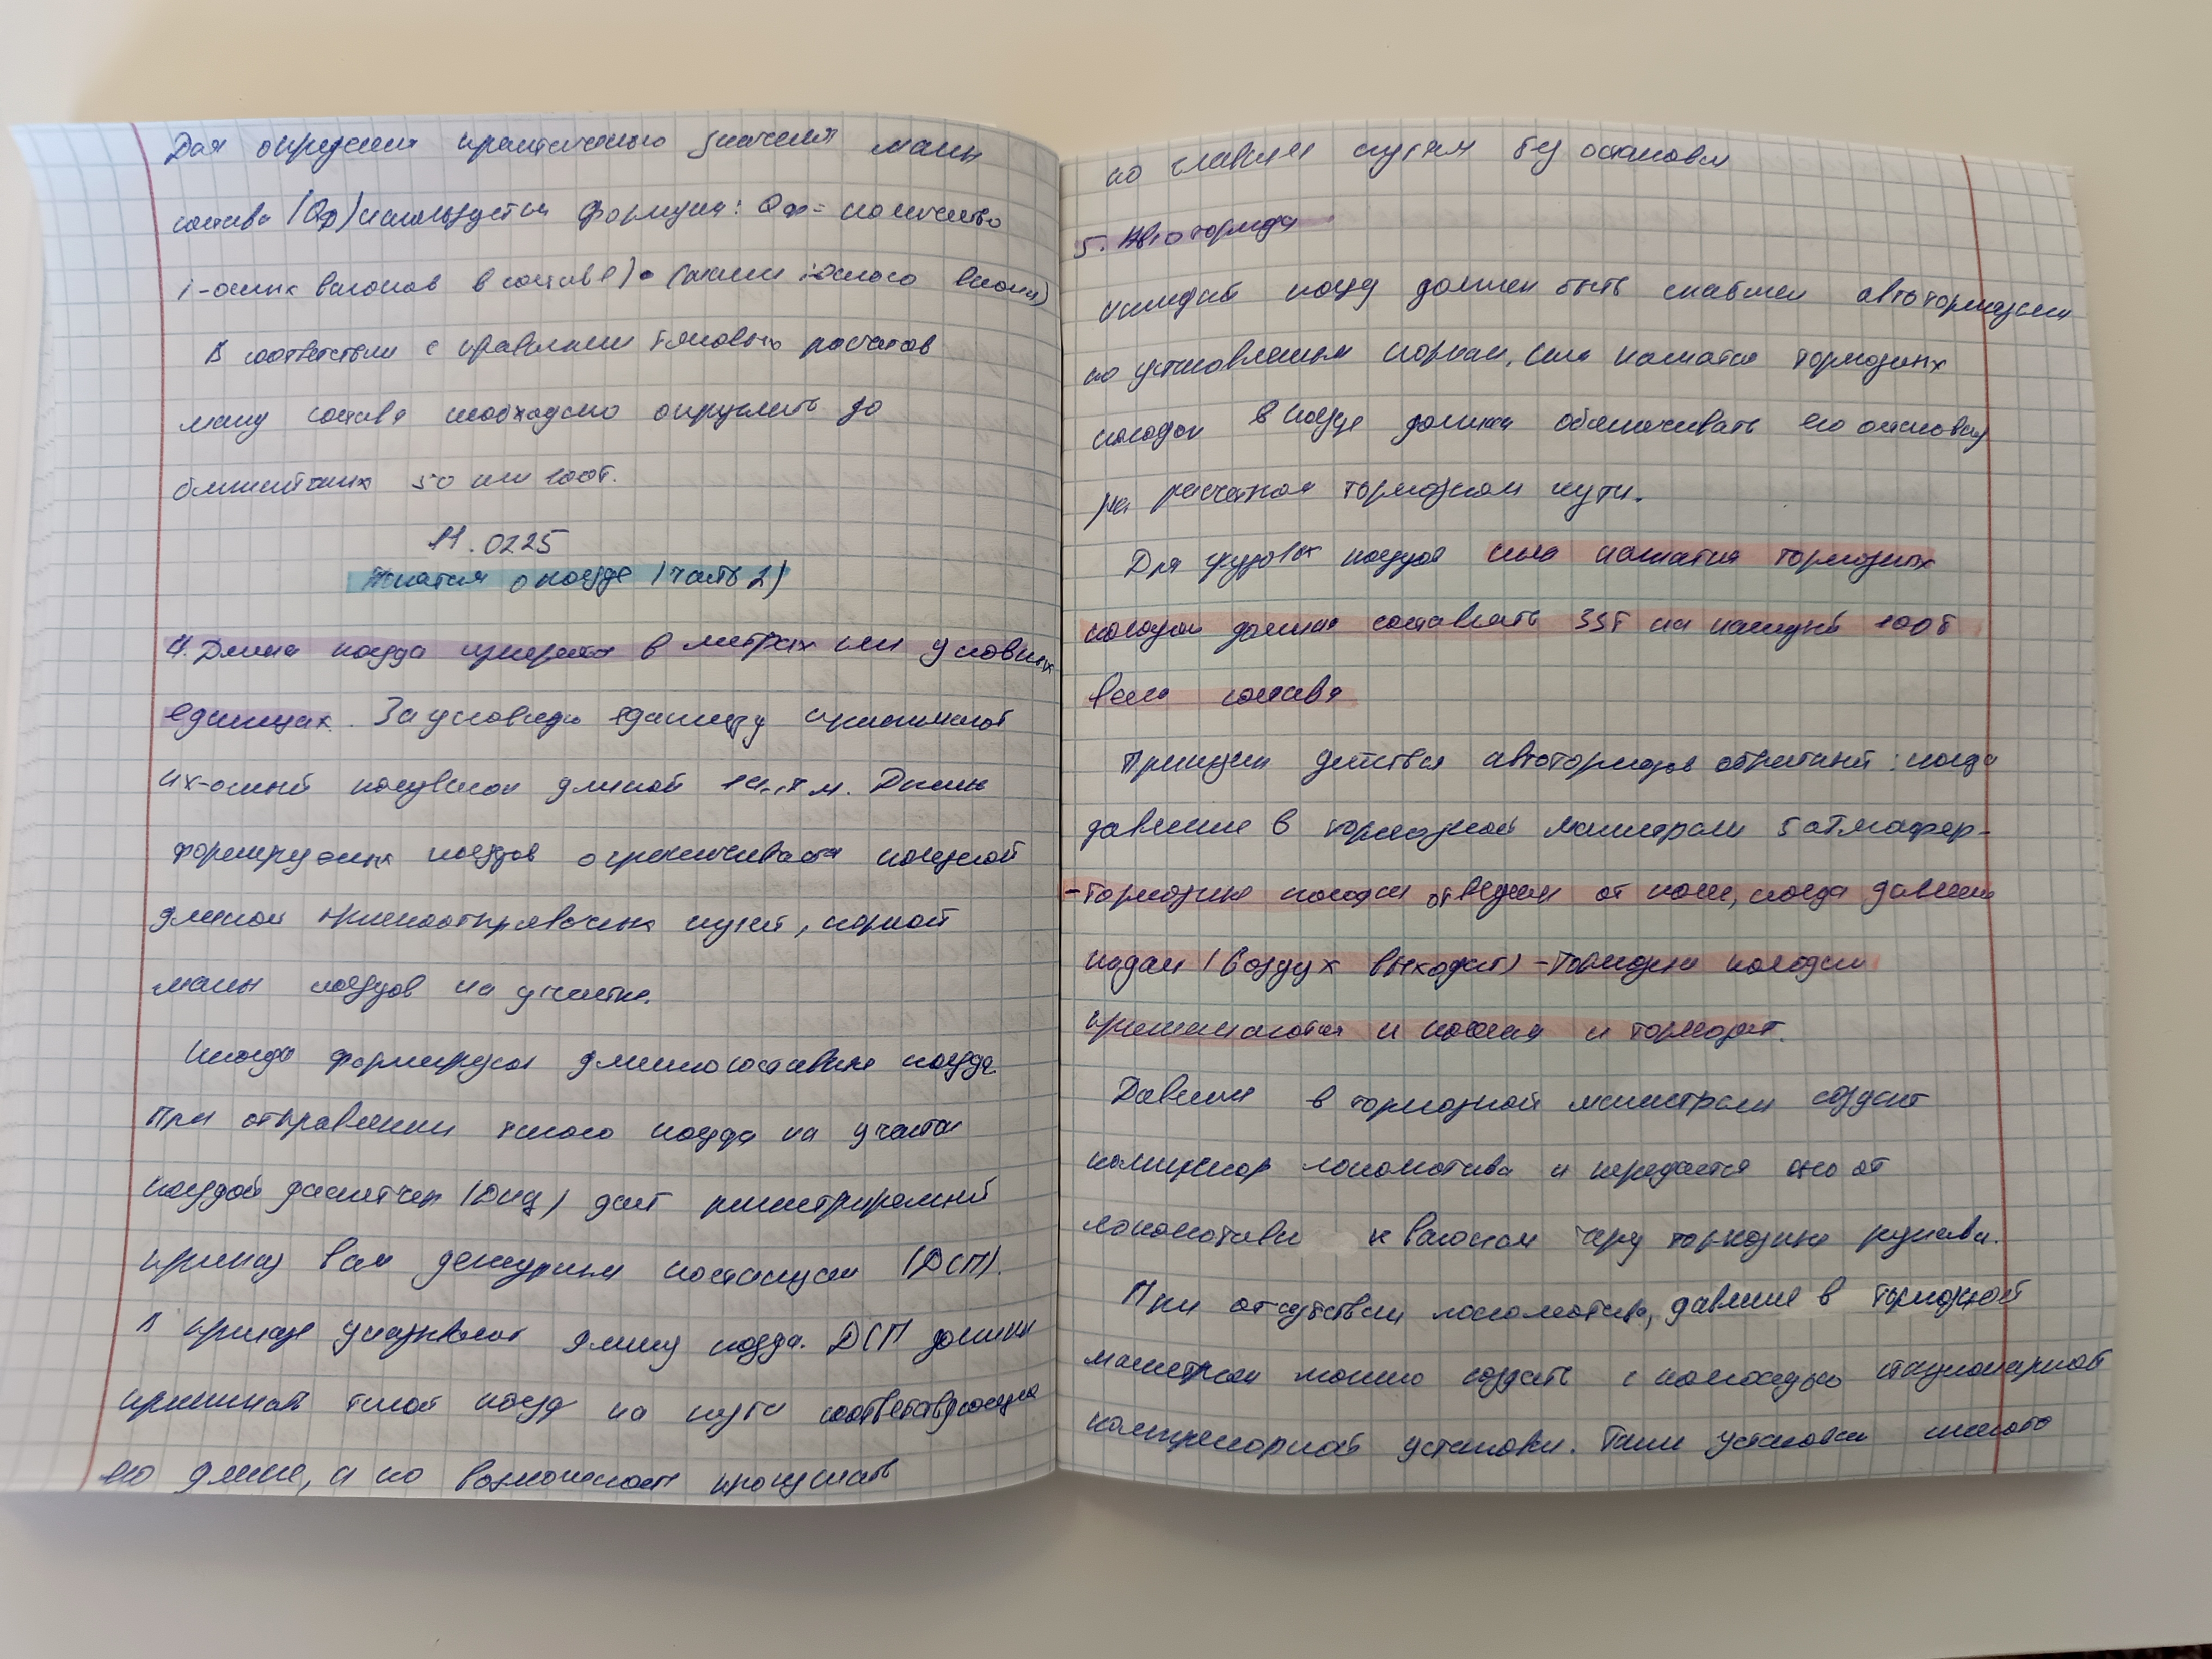 Для определения практического значения массы
состава (Qф) используется формула: Qф = количество
i-осных вагонов в составе) • (массы i-осного вагона)
В соответствии с правилами тяговых расчетов
массу состава необходимо округлить до
ближайших 50 или 100т.
11.0225
Понятия о поезде (часть 2)
4. Длина поезда измеряется в метрах или условных
единицах. За условную единицу принимают
4х-осный полувагон длиной м. Длина
формируемых поездов ограничивается полезной
длиной приемоотправочных путей, нормой
массы поездов на участке.
Иногда формируются длинносоставные поезда
При отправлении такого поезда на участок
поездной диспетчер (ДНЦ) даёт регистрируемый
приказ всем дежурным по станции (ДСП).
В приказе указывают длину поезда. ДСП должны
принимать такой поезд на пути соответствующие
его длине, а по возможности пропускать
по главным путям без остановки
5. Автотормоза
Каждый поезд должен быть снабжен автотормозами
по установленным нормам, сила нажатия тормозных
колодок в поезде должна обеспечивать его остановку
на расчетном тормозном пути.
Для грузовых поездов сила нажатия тормозных
колодок должна составлять 33т на каждые 100т
веса состава
Принцип действия автотормозов обратный: когда
давление в тормозной магистрали 5 атмосфер-
-тормозные колодки отведены от колес, когда давление
падает (воздух выходит) - тормозные колодки
прижимаются к колесам и тормозят.
Давление в тормозной магистрали создает
компрессор локомотива и передается оно от
локомотива к вагонам через тормозные рукава.
При отсутствии локомотива, давление в тормозной
магистрали можно создать с помощью стационарной
компрессорной установки. Такие установки